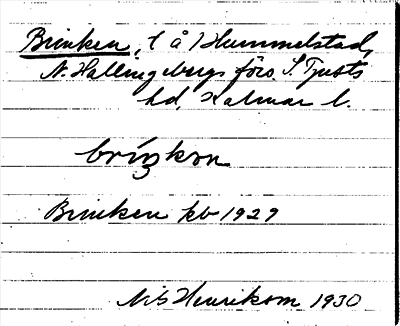 Brinken, t å Hummelstad,
N. Hallingebergs förs. S. Tjusts
hd, Kalmar l.
brinkɷn
Brinken kb 1929
Nils Henrikson 1930